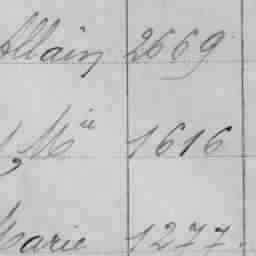 Allain 2669
, Mie 1616
Marie 1277.